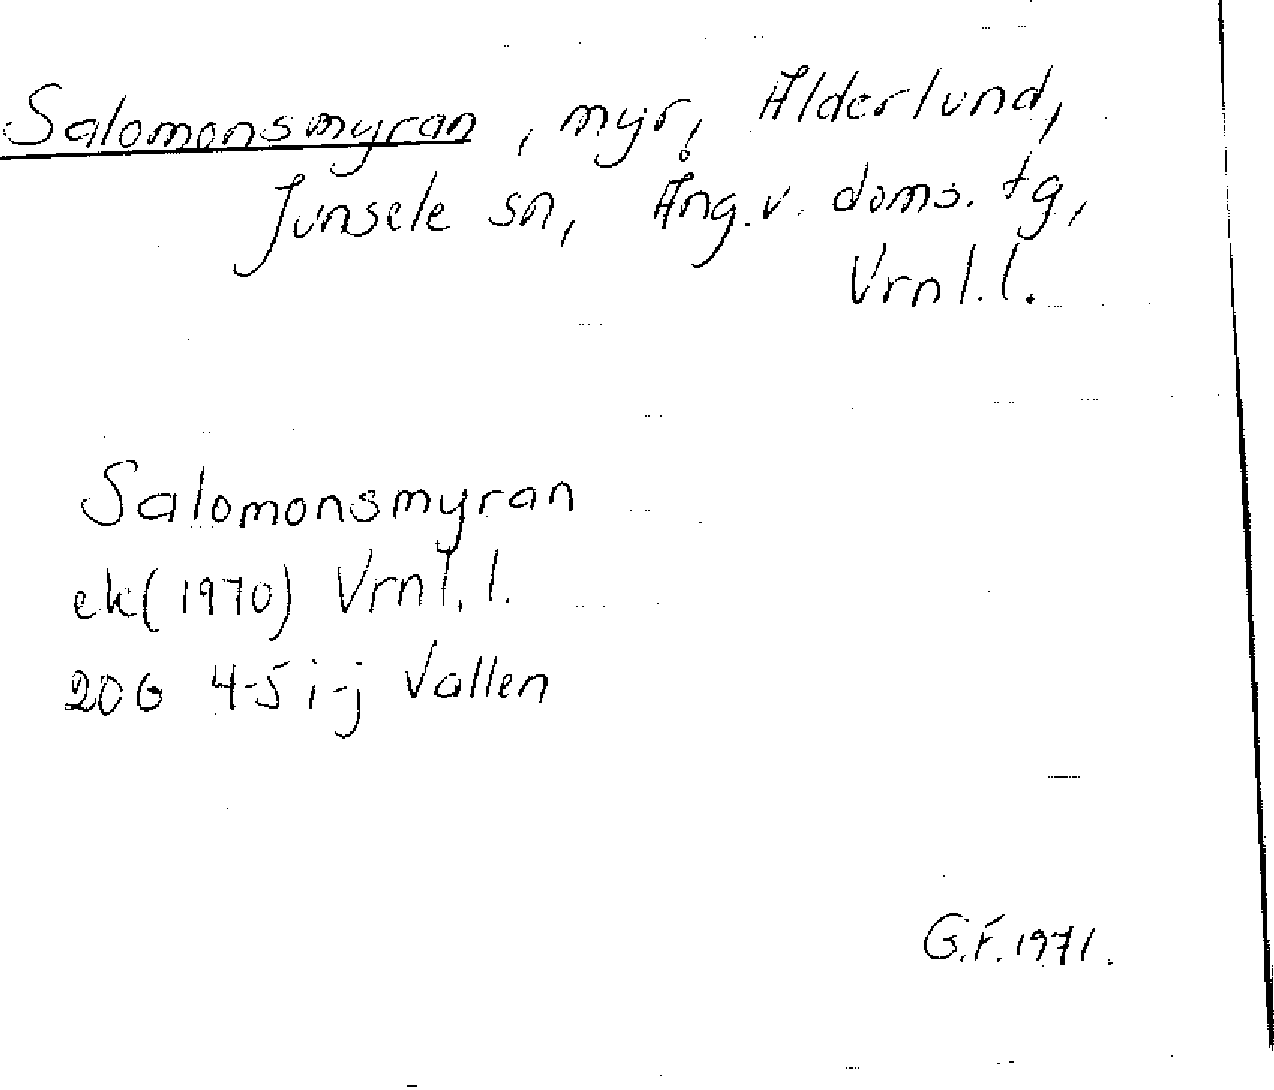 Salomonsmyran, myr, Älderlund,
Junsele sn, Ång.v. doms. tg,
Vrnl.l.
Salomonsmyran
ek(1970) Vrnl.l.
20G 4-5 i-j Vallen
G.F.1971.